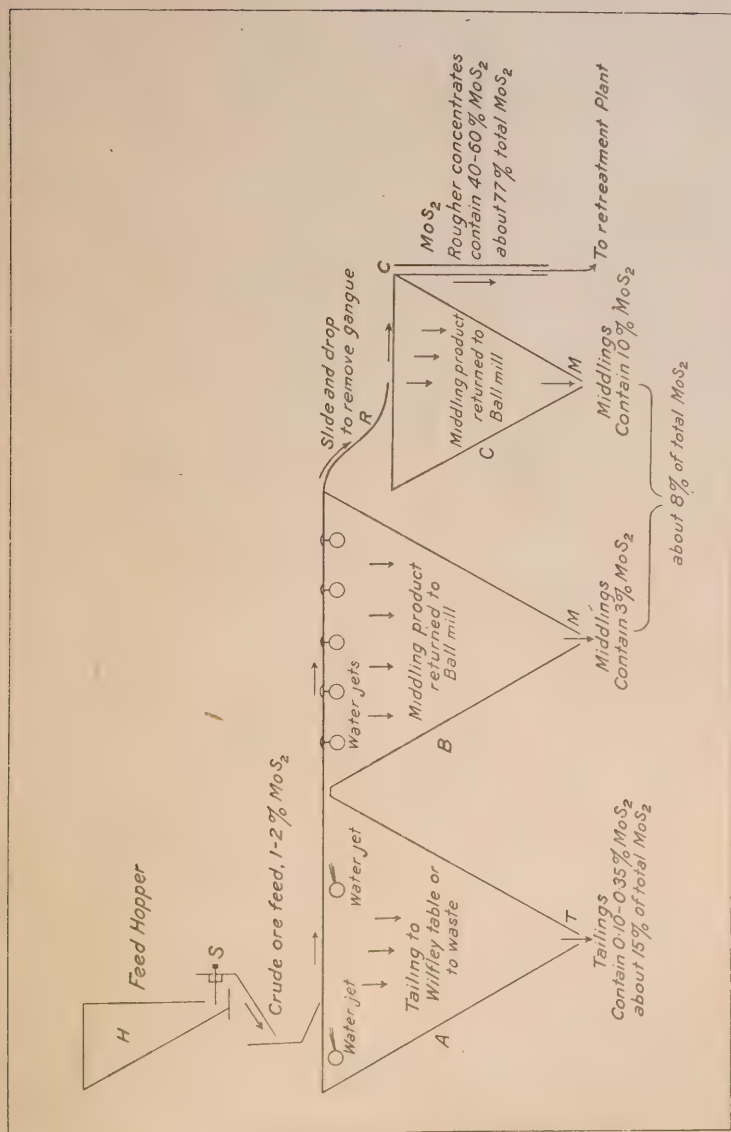 Feed Hopper
H
S
Crude ore feed, 1-2% MoS₂
Water jet
Water jet
Tailing to
Wilfley table or
to waste
A
T
Tailings
Contain 0·10-0·35% MoS₂
about 15% of total MoS₂
Water jets
Middling product
returned to
Ball mill
B
M
Middlings
Contain 3% MoS₂
Slide and drop
to remove gangue
R
C
Middling product
returned to
Ball mill
C
M
Middlings
Contain 10% MoS₂
about 8% of total MoS₂
MoS₂
Rougher concentrates
contain 40-60% MoS₂
about 77% total MoS₂
To retreatment Plant